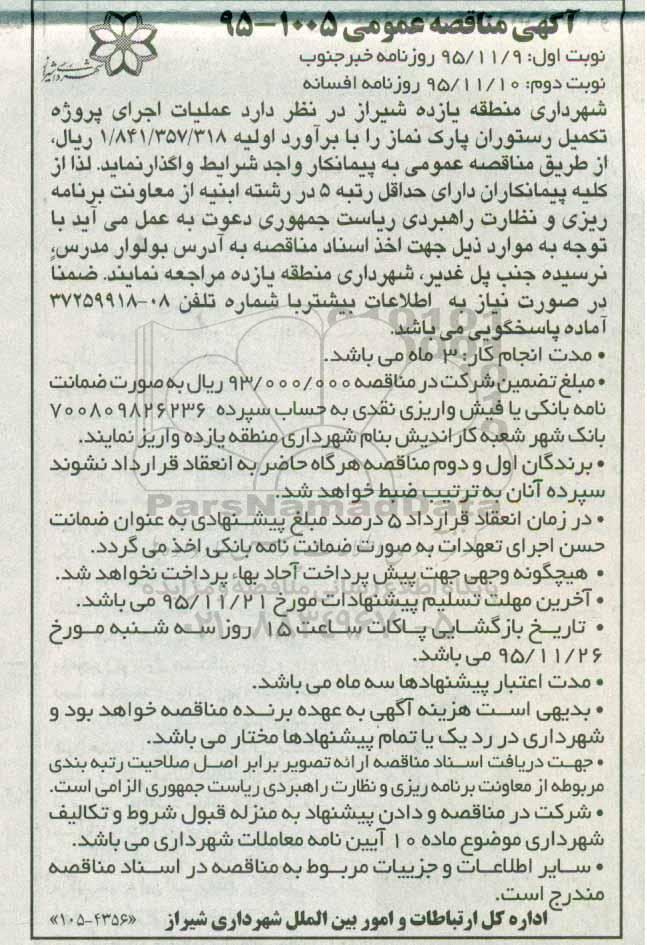 آگهی مناقصه عمومی ۱۰۰۵-۹۵
نوبت اول: ۹۵/۱۱/۹ روزنامه خبرجنوب
نوبت دوم: ۹۵/۱۱/۱۰ روزنامه افسانه
شهرداری منطقه یازده شیراز در نظر دارد عملیات اجرای پروژه
تکمیل رستوران پارک نماز را با برآورد اولیه ۱/۸۴۱/۳۵۷/۳۱۸ ریال،
از طریق مناقصه عمومی به پیمانکار واجد شرایط واگذارنماید. لذا از
کلیه پیمانکاران دارای حداقل رتبه ۵ در رشته ابنیه از معاونت برنامه
ریزی و نظارت راهبردی ریاست جمهوری دعوت به عمل می آید با
توجه به موارد ذیل جهت اخذ اسناد مناقصه به آدرس بولوار مدرس،
نرسیده جنب پل غدیر، شهرداری منطقه یازده مراجعه نمایند. ضمناً
در صورت نیاز به اطلاعات بیشتربا شماره تلفن ۰۸-۳۷۲۵۹۹۱۸
آماده پاسخگویی می باشد.
• مدت انجام کار: ۳ ماه می باشد.
• مبلغ تضمین شرکت در مناقصه ۹۳/۰۰۰/۰۰۰ ریال به صورت ضمانت
نامه بانکی یا فیش واریزی نقدی به حساب سپرده ۷۰۰۸۰۹۸۲۶۲۳۶
بانک شهر شعبه کاراندیش بنام شهرداری منطقه یازده واریز نمایند.
• برندگان اول و دوم مناقصه هرگاه حاضر به انعقاد قرارداد نشوند
سپرده آنان به ترتیب ضبط خواهد شد.
• در زمان انعقاد قرارداد ۵ درصد مبلغ پیشنهادی به عنوان ضمانت
حسن اجرای تعهدات به صورت ضمانت نامه بانکی اخذ می گردد.
• هیچگونه وجهی جهت پیش پرداخت آحاد بهاء پرداخت نخواهد شد.
• آخرین مهلت تسلیم پیشنهادات مورخ ۹۵/۱۱/۲۱ می باشد.
• تاریخ بازگشایی پاکات ساعت ۱۵ روز سه شنبه مورخ
۹۵/۱۱/۲۶ می باشد.
• مدت اعتبار پیشنهادها سه ماه می باشد.
• بدیهی است هزینه آگهی به عهده برنده مناقصه خواهد بود و
شهرداری در رد یک یا تمام پیشنهادها مختار می باشد.
• جهت دریافت اسناد مناقصه ارائه تصویر برابر اصل صلاحیت رتبه بندی
مربوطه از معاونت برنامه ریزی و نظارت راهبردی ریاست جمهوری الزامی است.
• شرکت در مناقصه و دادن پیشنهاد به منزله قبول شروط و تکالیف
شهرداری موضوع ماده ۱۰ آیین نامه معاملات شهرداری می باشد.
• سایر اطلاعات و جزییات مربوط به مناقصه در اسناد مناقصه
مندرج است.
اداره کل ارتباطات و امور بین الملل شهرداری شیراز «۱۰۵-۴۳۵۶»
ParsNamadData